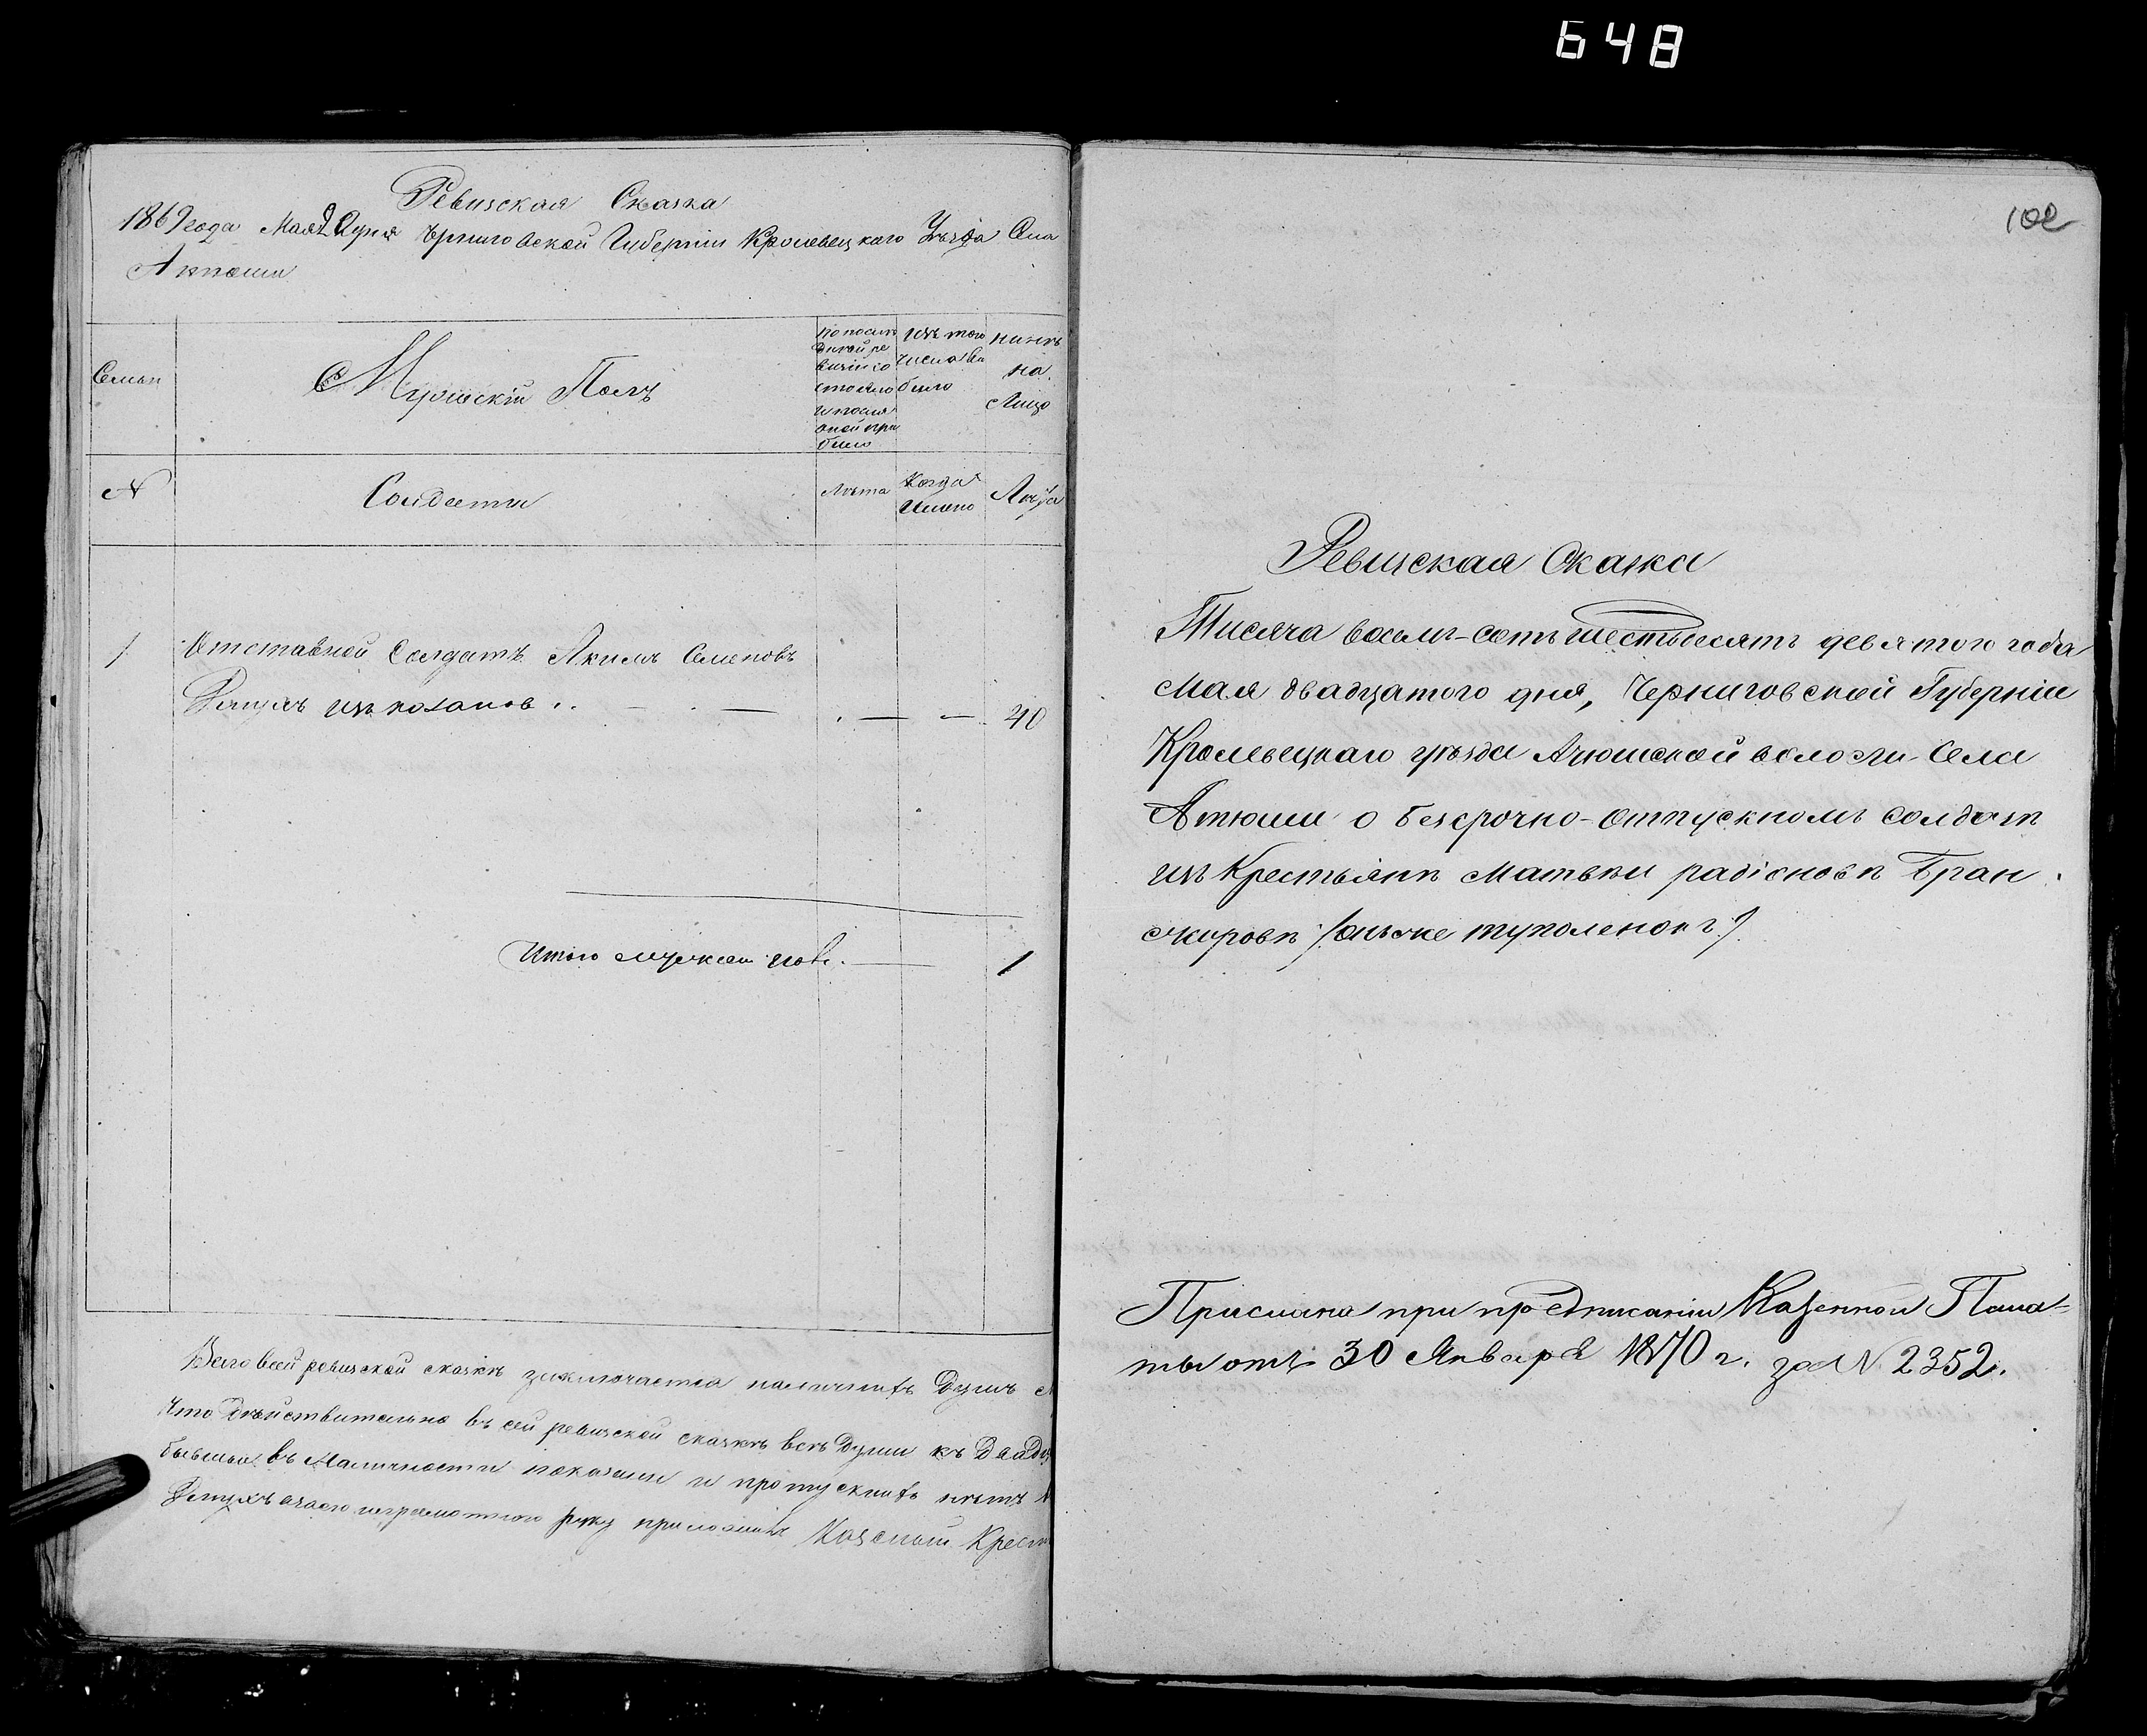 648
Ревизская Сказка
1869 года Мая Черниговской Губернiи Кролевецкаго Уѣзда Села
Атюши
Семьи
Мужскiй Полъ
по послѣ
дней ре
визiи со
стояло
и послѣ
оной при
было
изъ того
числа вы
было
нынѣ
на
Лицо
N
Солдаты
Лѣта
Когда
Имено
Лѣта
1
Отставной Солдатъ Якимъ Семеновъ
изъ козаков . .
40
Итого мужеск пола
1
Въ сей ревизской сказкѣ заключается наличныхъ Душъ
Что Дѣйствительно въ сей ревизской сказкѣ всѣ Души къ Двадц
въ Наличности показаны и пропускныхъ нѣтъ
неграмотного руку приложилъ Крест
102
Ревизская Сказка
Тисяча восемь-сотъ шестьдесятъ девятого года
Мая двадцатого дня, Черниговской Губернiи
Кролевецкаго уѣзда Атюшской волости Села
Атюши о безсрочно-отпускномъ солдатѣ
изъ Крестьянъ Матвѣи радiоновъ Бран
Прислана при предписанiи Казенной Пала-
ты отъ 30 Января 1870 г. за N 2352.